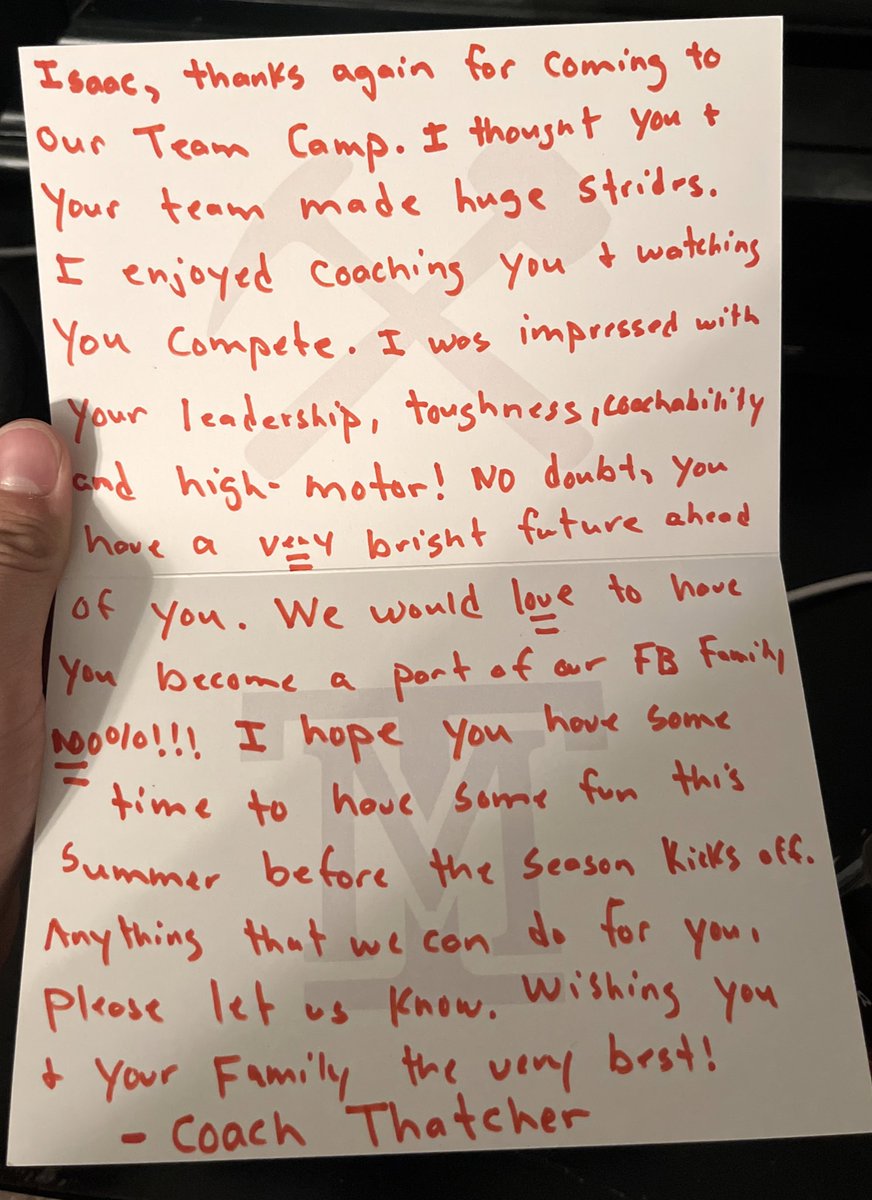 Isaac, thanks again for coming to
our Team Camp. I thought you +
your team made huge strides.
I enjoyed coaching you + watching
you compete. I was impressed with
your leadership, toughness, coachability
and high-motor! No doubt, you
have a very bright future ahead
of you. We would love to have
you become a part of our FB Family
1000%!!! I hope you have some
time to have some fun this
summer before the season kicks off.
Anything that we can do for you,
please let us know. Wishing you
+ your Family the very best!
- Coach Thatcher
MT